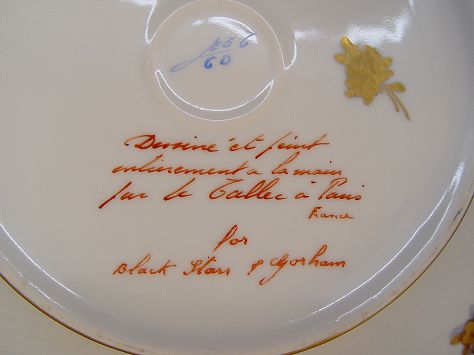 Dessiné et peint
entierement a la main
par le Tallec à Paris
France
for
Black Starr & Gorham